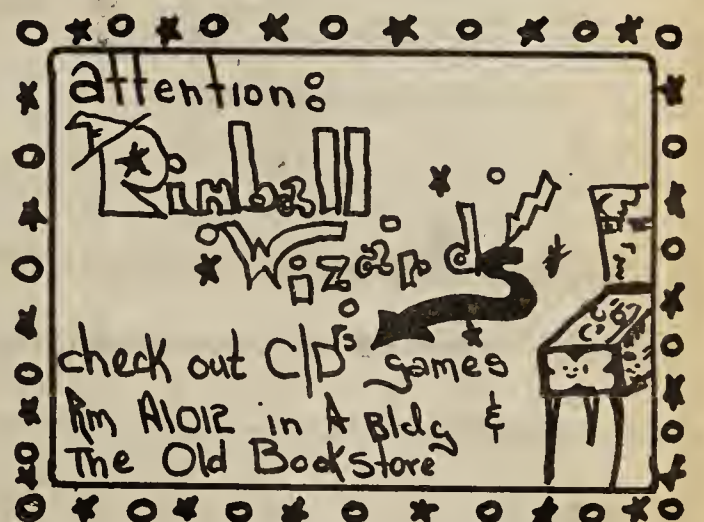 attention:
Pinball
Wizards
check out C/D's games
Rm A1012 in A Bldg &
The Old Bookstore